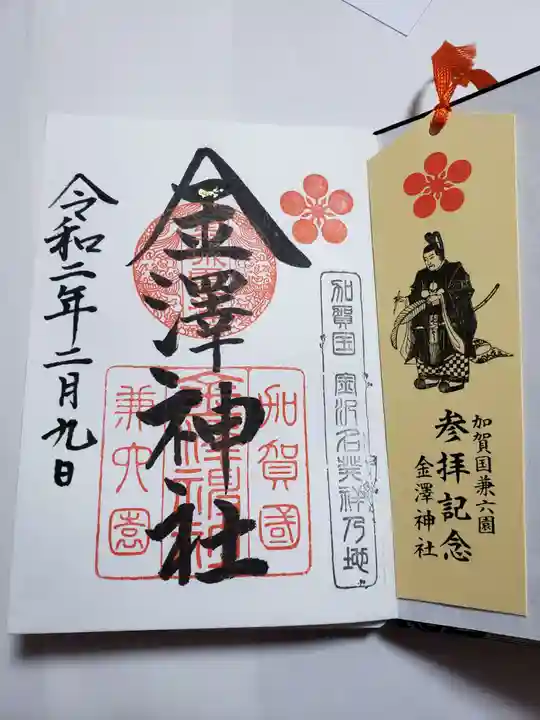 参拝記念
加賀国兼六園
金澤神社
加賀国 金沢名発祥乃地
金澤神社
加賀國
金澤神社
兼六園
令和二年二月九日